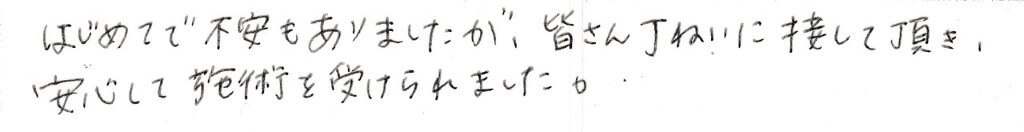 はじめてで不安もありましたが、皆さん丁ねいに接して頂き、
安心して施術を受けられました。